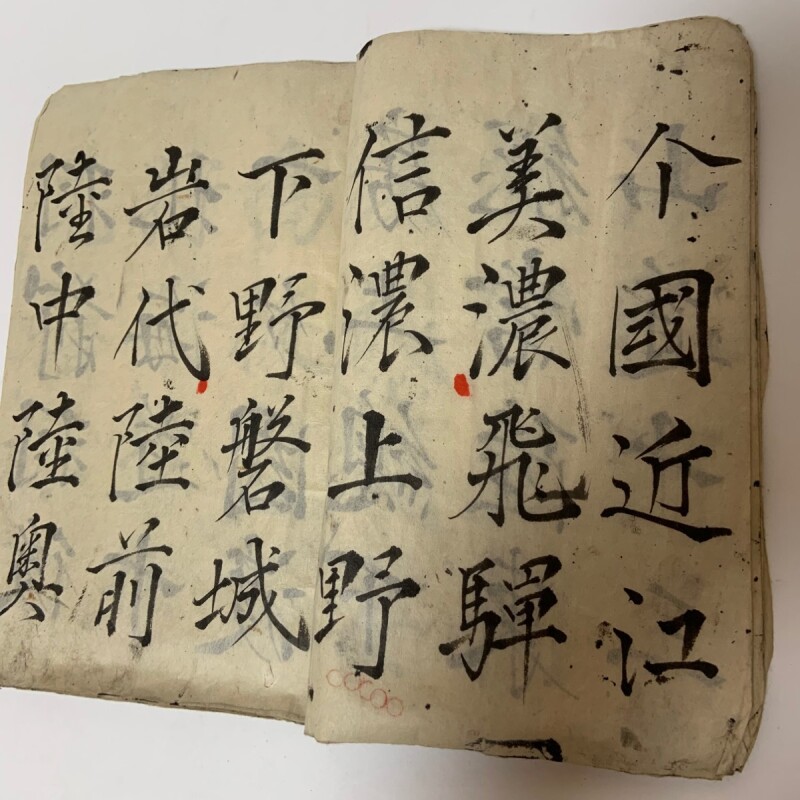 个國近江
美濃飛騨
信濃上野
下野磐城
岩代陸前
陸中陸奥